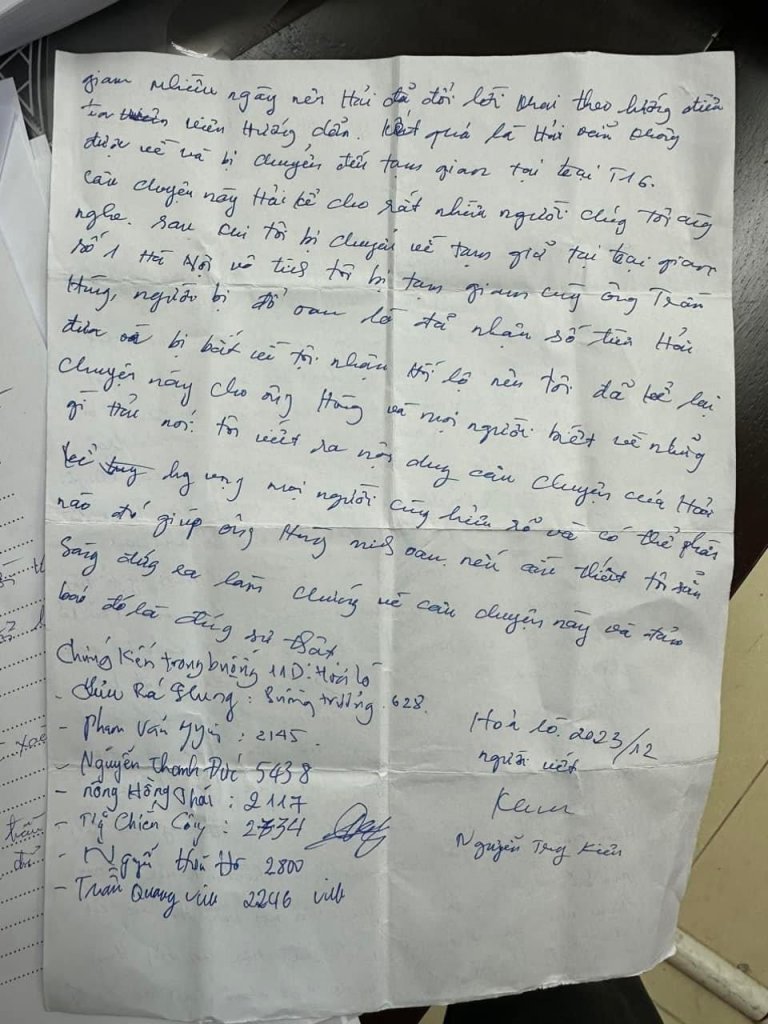 giam nhiều ngày nên Hải đã đổi lời khai theo hướng điều
tra viên hướng dẫn. Kết quả là Hải vẫn không
được về và bị chuyển đến tạm giam tại trại T16.
Câu chuyện này Hải kể cho rất nhiều người chúng tôi cùng
nghe. sau khi tôi bị chuyển về tạm giữ tại trại giam
số 1 Hà Nội vô tình tôi bị tạm giam cùng ông Trần
Hùng, người bị đổ oan là đã nhận số tiền Hải
đưa và bị bắt về tội nhận hối lộ nên tôi đã kể lại
chuyện này cho ông Hùng và mọi người biết về những
gì Hải nói. tôi viết ra nội dung câu chuyện của Hải
kể hy vọng mọi người cùng hiểu rõ và có thể phần
nào đó giúp ông Hùng minh oan. nếu cần thiết tôi sẵn
sàng đứng ra làm chứng về câu chuyện này và đảm
bảo đó là đúng sự thật
Chứng kiến trong buồng 11D: Hoả lò
- Bá : Buồng trưởng. 628.
- Phạm Văn : 2145.
- Nguyễn Thanh Đức 5438
- Nông Hồng Thái : 2117
- Chiến Công : 2734
- 2800
- Trần Quang Vinh 2246 Vinh
Hoả lò. 2023/12
người viết
Kiên
Nguyễn Kiên